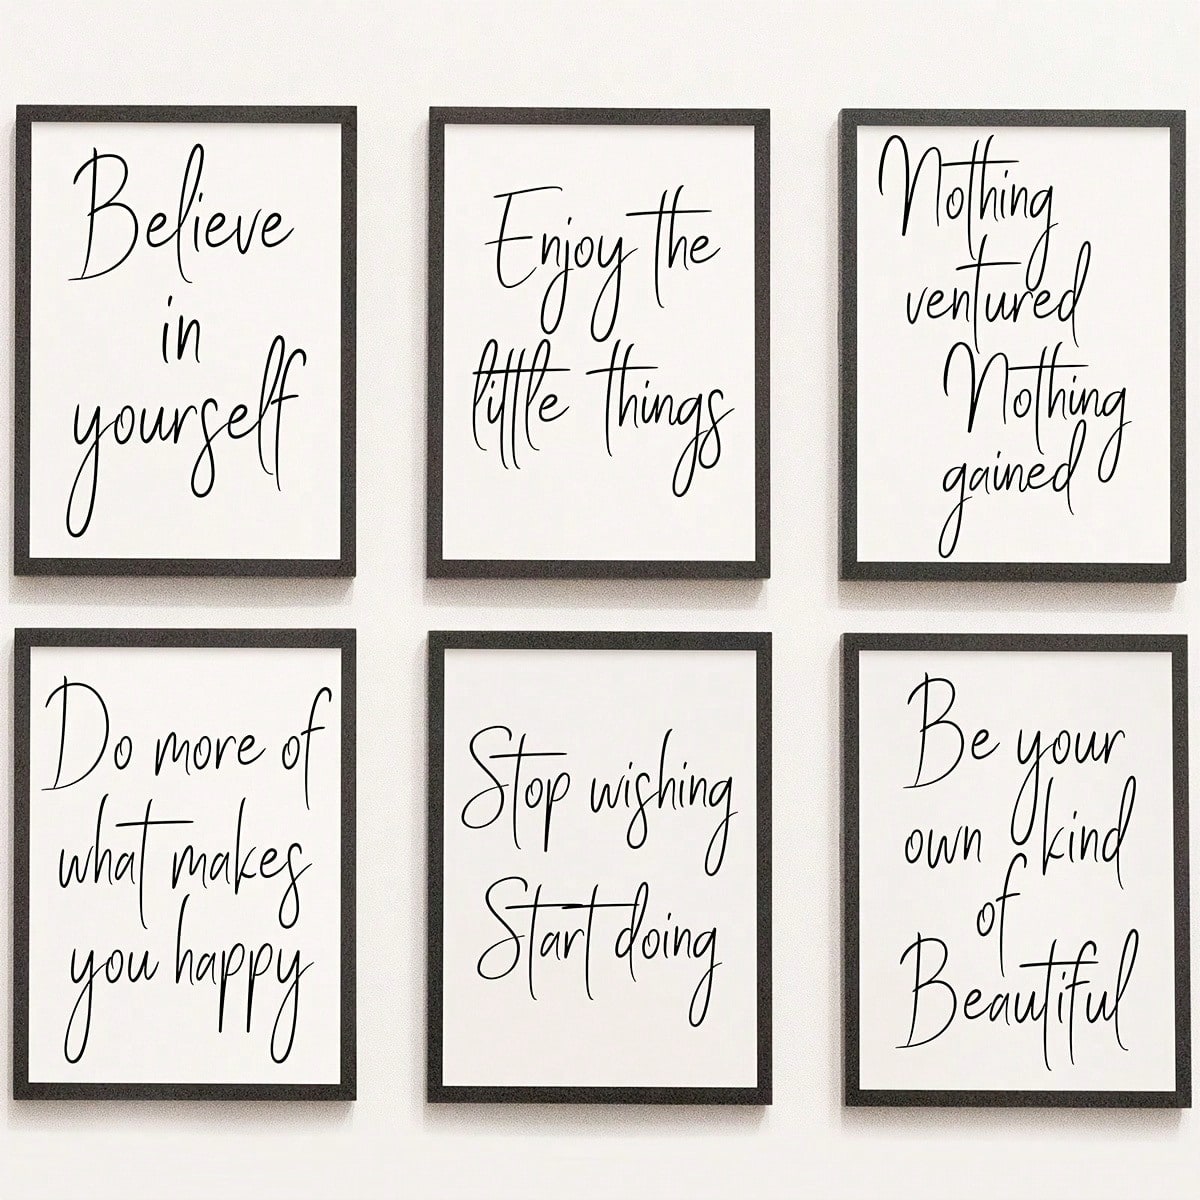 Believe
in
yourself
Enjoy the
little things
Nothing
ventured
Nothing
gained
Do more of
what makes
you happy
Stop wishing
Start doing
Be your
own kind
of
Beautiful